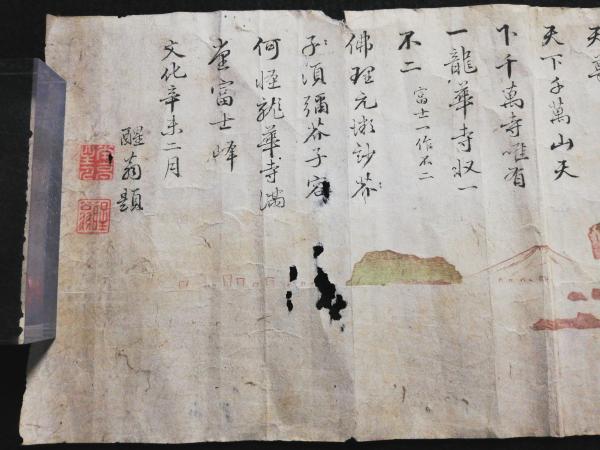 天下千萬山天
下千萬寺唯有
一龍華寺収一
不二 富士一作不二
佛理元微妙芥
子須彌芥子容
何怪龍華寺満
堂富士峰
文化辛未二月
醒翁題